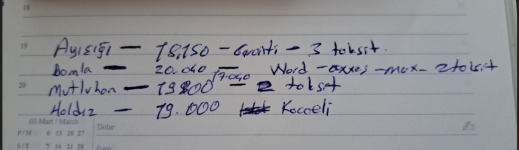 18
19 Ayışığı — 18,150 — Garanti — 3 taksit.
Damla — 20.040 — Word — axxes — max — 2 taksit
17.040
20 Mutluhan — 19200 — 2 taksit
Haldız — 19.000 Kocaeli
03 Mart / March
P/M 6 13 20 27
S/T 7 14 21 28